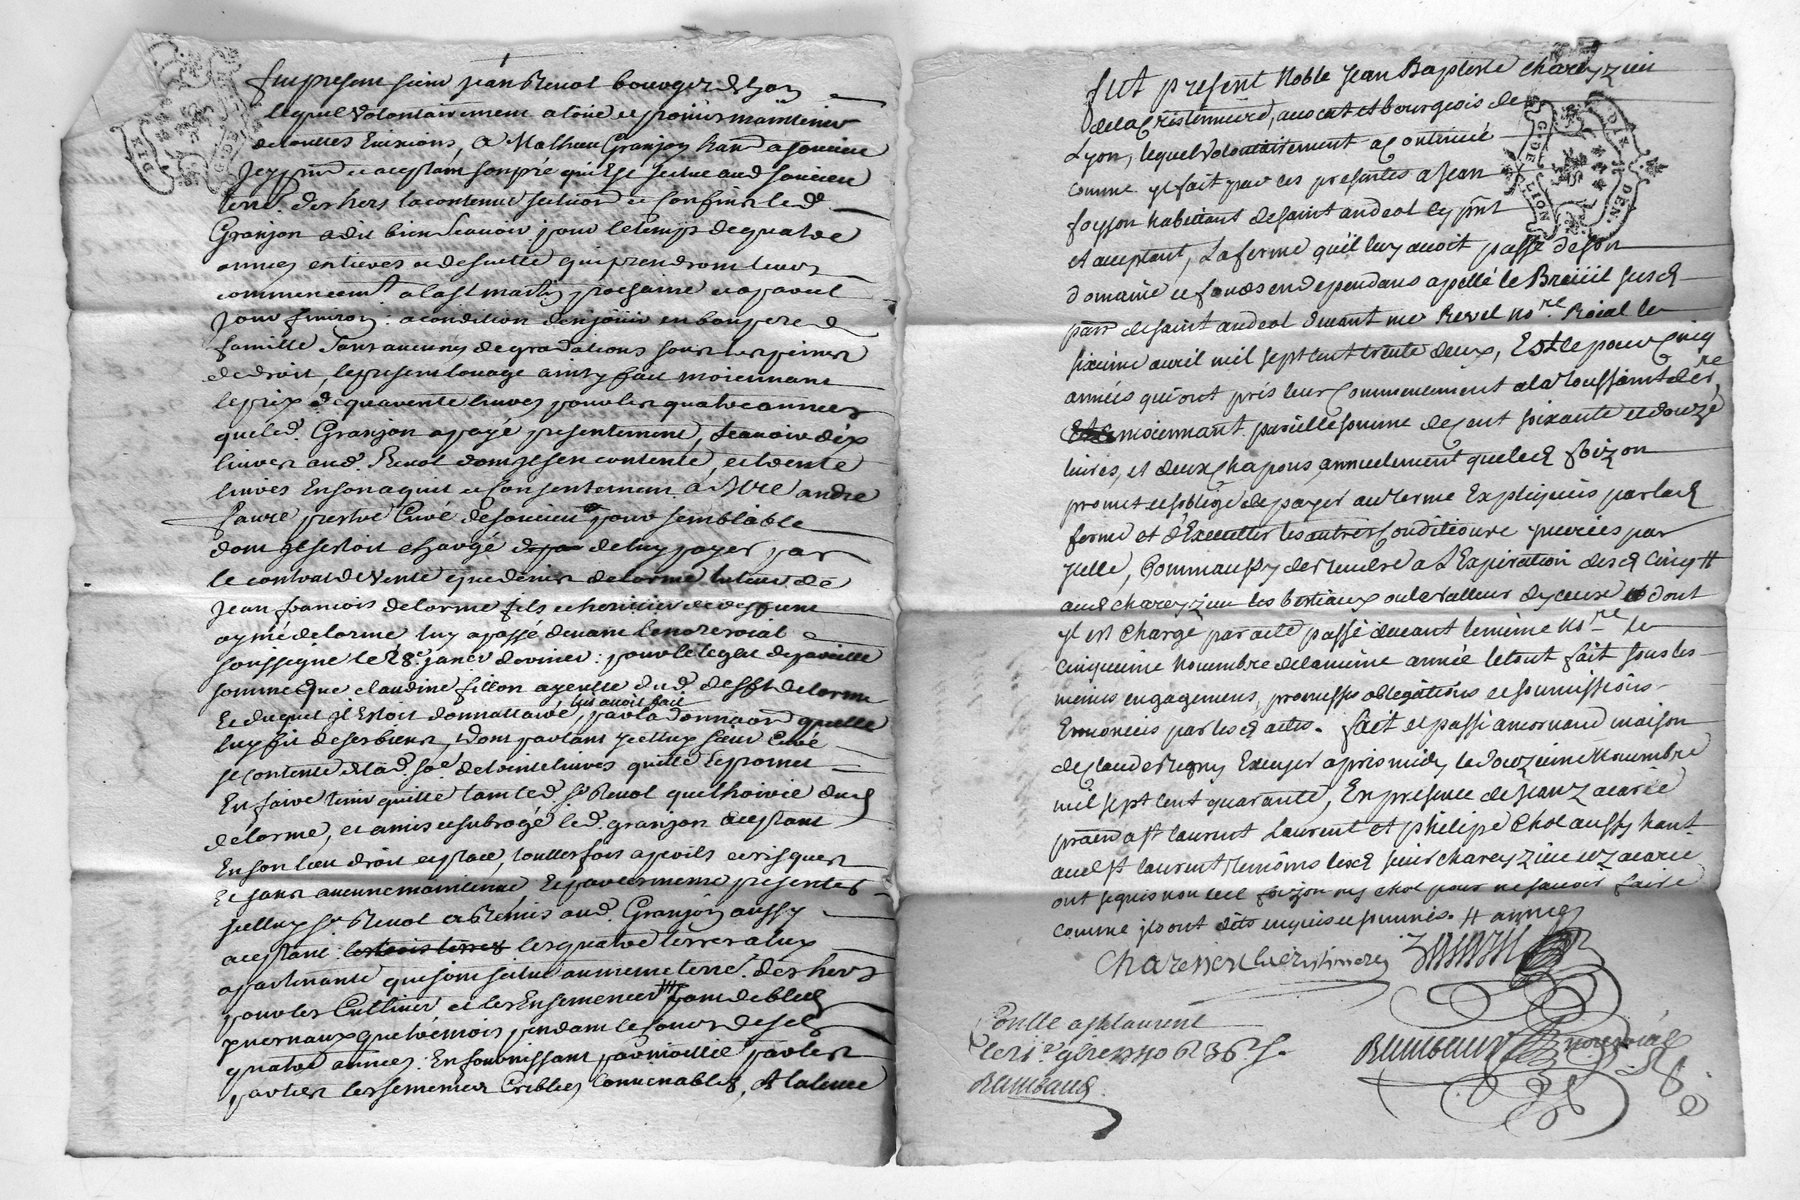 Fut present sieur jean Renol bourgeois de Lyon
lequel volontairement a loué et promis maintenir
de touttes Evixions, A Mathieu Granjon hant a soucieu
Jcy pnt et aceptant son pré qui Est scitue aud soucieu
terre des hers la contenue scituaon et confins led
Granjon a dit bien scavoir, pour le temps de quatre
années entieres et de suitte qui prendront leurs
commencemt a la st martin prochaine et a pareil
jour finiront : a condition d'en jouir en bon pere de
famille sans aucunes degradations sous les peines
de droit, le present louage ainsy fait moiennant
le prix de quarente livres pour les quatre années
que led. Granjon a payé presentement, scavoir dix
livres aud. Renol dont jl se contente, et trente
livres En son aquit et consentement a Mre andré
faure prestre Curé de soucieu pour semblable
dont jl estoit chargé de luy payer par
le contrat de vente que denis delorme tuteur de
jean francois delorme fils et heritier de deffunt
aymé delorme luy a passé devant le notre roial
soussigné le 28e janer dernier : pour le legat de pareille
somme que claudine fillon ayeulle dud. defft delorme
luy avoit fait
Et duquel jl Estoit donnattaire, par la donnaon quelle
luy fit de ses biens, dont partant jcelluy sieur Curé
se contente de lad. soe de trente livres quitte Et promet
En faire tenir quitte tant led. sr Renol que lhoirie dud
delorme, et a mis et subrogé led. granjon aceptant
En son lieu droit et place, touttesfois a perils et risques
Et sans aucune maintenue Et par ces mesme presentes
jcelluy sr Renol a Remis aud. Granjon aussy
aceptant les trois terres les quatre terres a luy
apartenante qui sont scitué au mesme terre. des hers
pour les Cultiver et les Ensemencer tant de bled
pendant le cours desd
quatre années : En fournissant par moittié par les
parties les semences Criblées Convenables, A la levée
fut present Noble jean Baptiste charezieu
de la Cristinniere, avocat et bourgeois de
Lyon, lequel volontairement a continué
comme jl fait par ces presentes a jean
foysson habitant de saint andeol jcy pnt
et acceptant, La ferme qu'il luy avoit passé de son
domaine et fonds en dependans apellé le Breiiil sus d
parr de saint andeol devant me Revel Nore Roial le
sixieme avril mil sept cent trente deux, Est ce pour Cinq
années qui ont pris leur Commencement a la toussaint derre
moiennant pareille somme de cent soixante et douze
livres, et deux chapons, annuelement que led foizon
promet et soblige de payer au terme Expliqués par lad
ferme et d'Executter les autres Conditions par
jcelle, Comm'aussy de rendre a l'Expiration desd Cinq #
aud charezieu les bestiaux ou la valleur dyceux dont
jl est chargé par acte passé devant le meme Nore le
cinquieme novembre de la meme année le tout fait sous les
memes engagemens, promesses obligations et soumissions
Enoncees par lesd actes. fait et passé a mornand maison
de claude pugny après midy le douzieme Novembre
mil sept cent quarante, En presence de jean zacarie
praen a st laurent Laurent et philipe Chol aussy hant
aud st laurent temoins lesd sieur charezieu et zacarie
ont signé non led foizon ny chol pour ne savoir faire
comme jls ont dits enquis et sommés. # années
Charesieu Lacristinniere Zacarie
Conllé a st laurent
le 21e 9bre 1740 R 36 s.
Rambaud
Rambaud nore roial